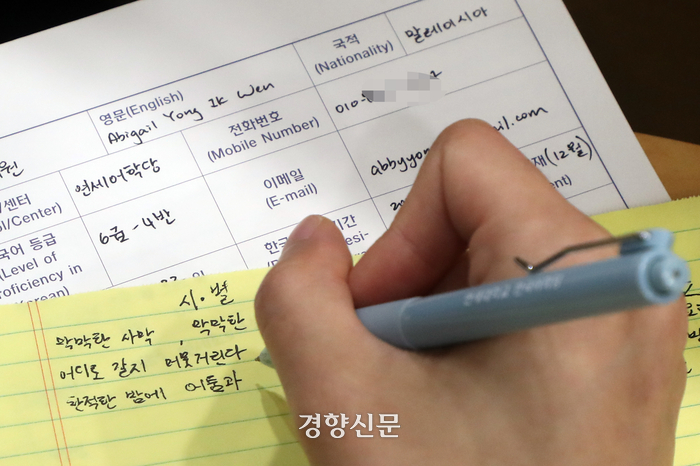 국적
(Nationality)
말레이시아
영문(English)
Abigail Yong Ik Wen
전화번호
(Mobile Number)
010-
연세어학당
6급-4반
이메일
(E-mail)
/센터
/Center)
국어 등급
(Level of
roficiency in
orean)
재(12월)
시·별
막막한 사막, 막막한
어디로 갈지 머뭇거린다
한적한 밤에 어둠과
경향신문